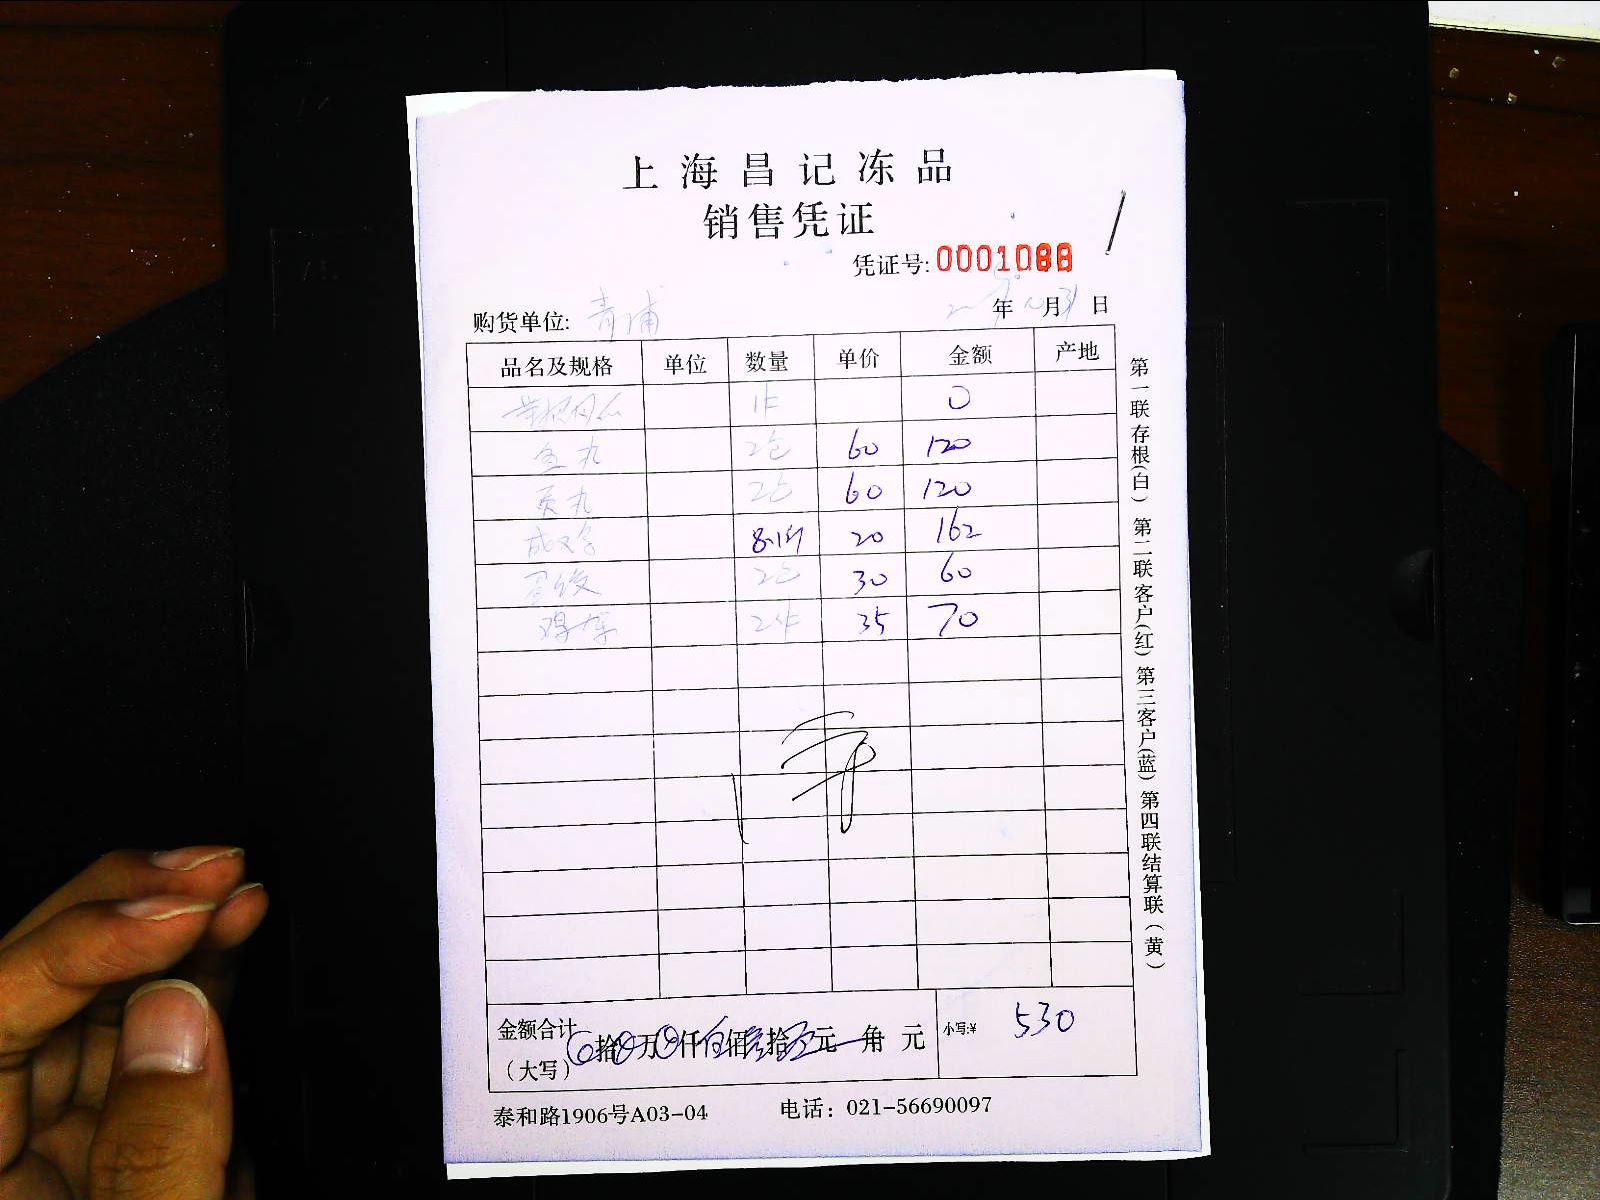 上海昌记冻品
销售凭证
凭证号: 0001088
购货单位: 青浦 年 月 31 日
品名及规格 单位 数量 单价 金额 产地
1件 0
鱼丸 2包 60 120
贡丸 2包 60 120
8.1斤 20 162
2包 30 60
2件 35 70
金额合计 拾 万 仟 佰 拾 元 角 元 小写:¥ 530
(大写)
泰和路1906号A03-04 电话: 021-56690097
第一联存根(白) 第二联客户(红) 第三客户(蓝) 第四联结算联(黄)